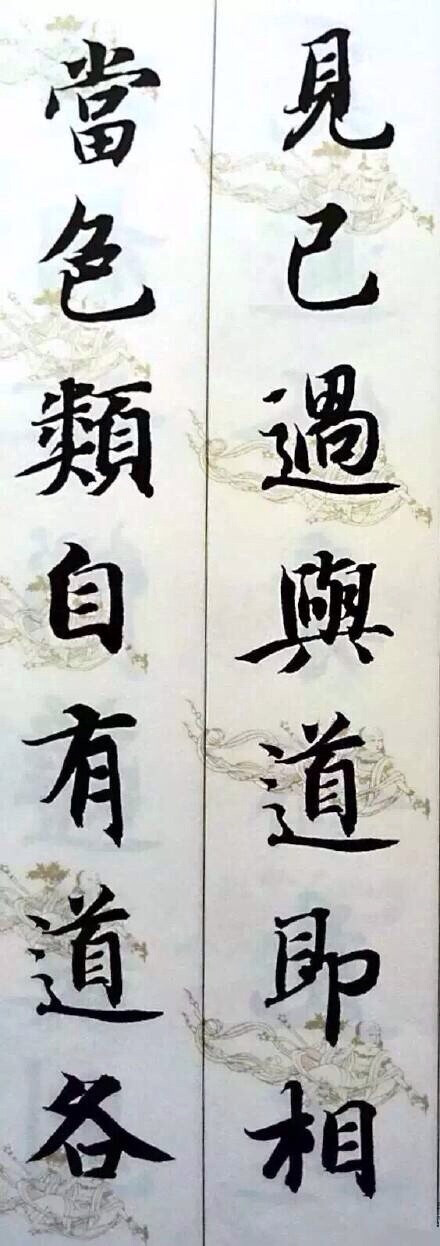 見已過與道即相
當色類自有道各